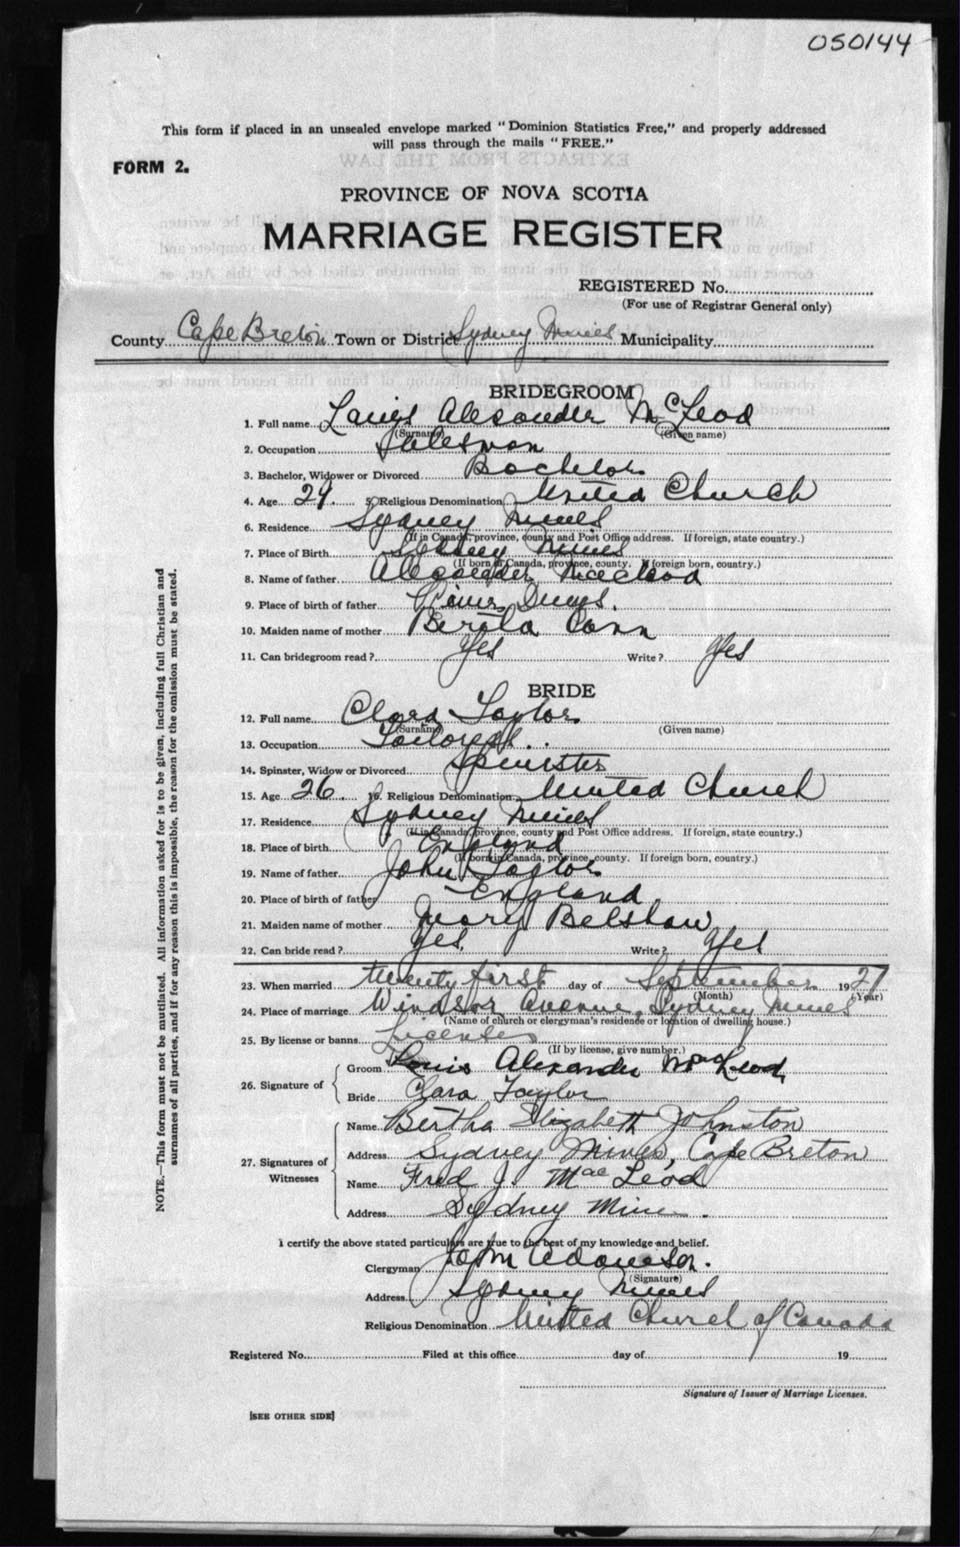 050144
This form if placed in an unsealed envelope marked "Dominion Statistics Free," and properly addressed
will pass through the mails "FREE."
FORM 2.
PROVINCE OF NOVA SCOTIA
MARRIAGE REGISTER
REGISTERED No.
(For use of Registrar General only)
County Cape Breton Town or District Sydney Mines Municipality
BRIDEGROOM
1. Full name Louis Alexander McLeod
(Surname) (Given name)
2. Occupation Salesman
3. Bachelor, Widower or Divorced Bachelor
4. Age 29. 5. Religious Denomination United Church
6. Residence Sydney Mines
(If in Canada, province, county and Post Office address. If foreign, state country.)
7. Place of Birth Sydney Mines
(If born in Canada, province, county. If foreign born, country.)
8. Name of father Alexander Macleod
9. Place of birth of father
10. Maiden name of mother Cann
11. Can bridegroom read? Yes Write? Yes
BRIDE
12. Full name Clara Taylor
(Surname) (Given name)
13. Occupation Tailoress
14. Spinster, Widow or Divorced Spinster
15. Age 26. 16. Religious Denomination United Church
17. Residence Sydney Mines
(If in Canada, province, county and Post Office address. If foreign, state country.)
18. Place of birth England
(If born in Canada, province, county. If foreign born, country.)
19. Name of father John Taylor
20. Place of birth of father England
21. Maiden name of mother Mary Belshaw
22. Can bride read? Yes. Write? Yes
23. When married twenty first day of September 1927
(Month) (Year)
24. Place of marriage Windsor Avenue, Sydney Mines
(Name of church or clergyman's residence or location of dwelling house.)
25. By license or banns License
(If by license, give number.)
26. Signature of
Groom Louis Alexander MacLeod
Bride Clara Taylor
27. Signatures of Witnesses
Name Bertha Elizabeth Johnston
Address Sydney Mines, Cape Breton
Name Fred J. MacLeod
Address Sydney Mines.
I certify the above stated particulars are true to the best of my knowledge and belief.
Clergyman John
(Signature)
Address Sydney Mines
Religious Denomination United Church of Canada
Registered No. Filed at this office day of 19
Signature of Issuer of Marriage Licenses.
[SEE OTHER SIDE]
NOTE.—This form must not be mutilated. All information asked for is to be given, including full Christian and
surnames of all parties, and if for any reason this is impossible, the reason for the omission must be stated.